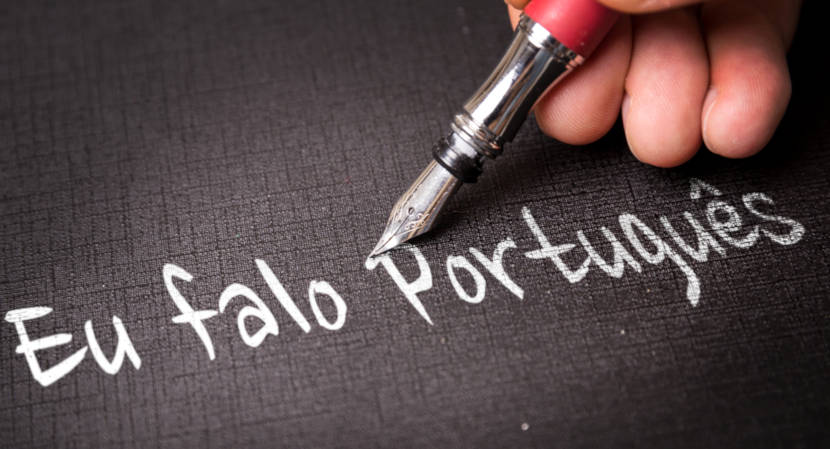 Eu falo Português